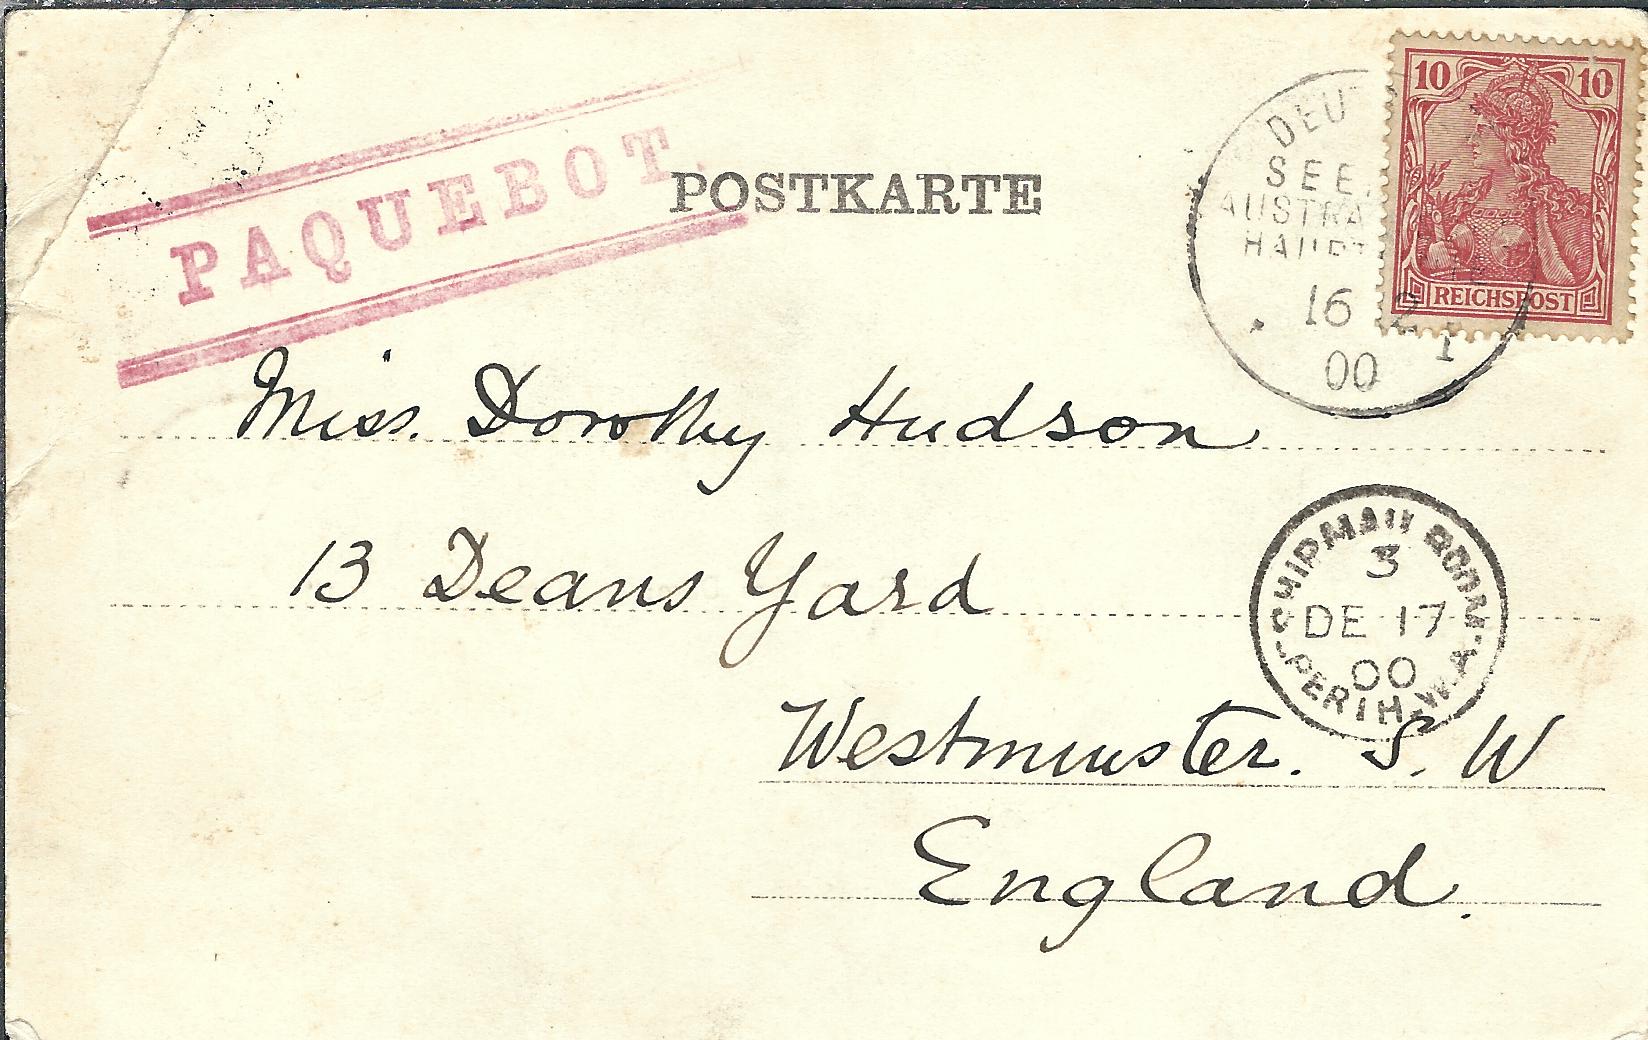 PAQUEBOT
POSTKARTE
10 10
REICHSPOST
DEU
SEE
AUSTRA
HAUPT
16 12
00
Miss. Dorothy Hudson
SHIP MAIL ROOM
3
DE 17
00
PERTH. W.A
13 Deans Yard
Westminster. S. W
England.